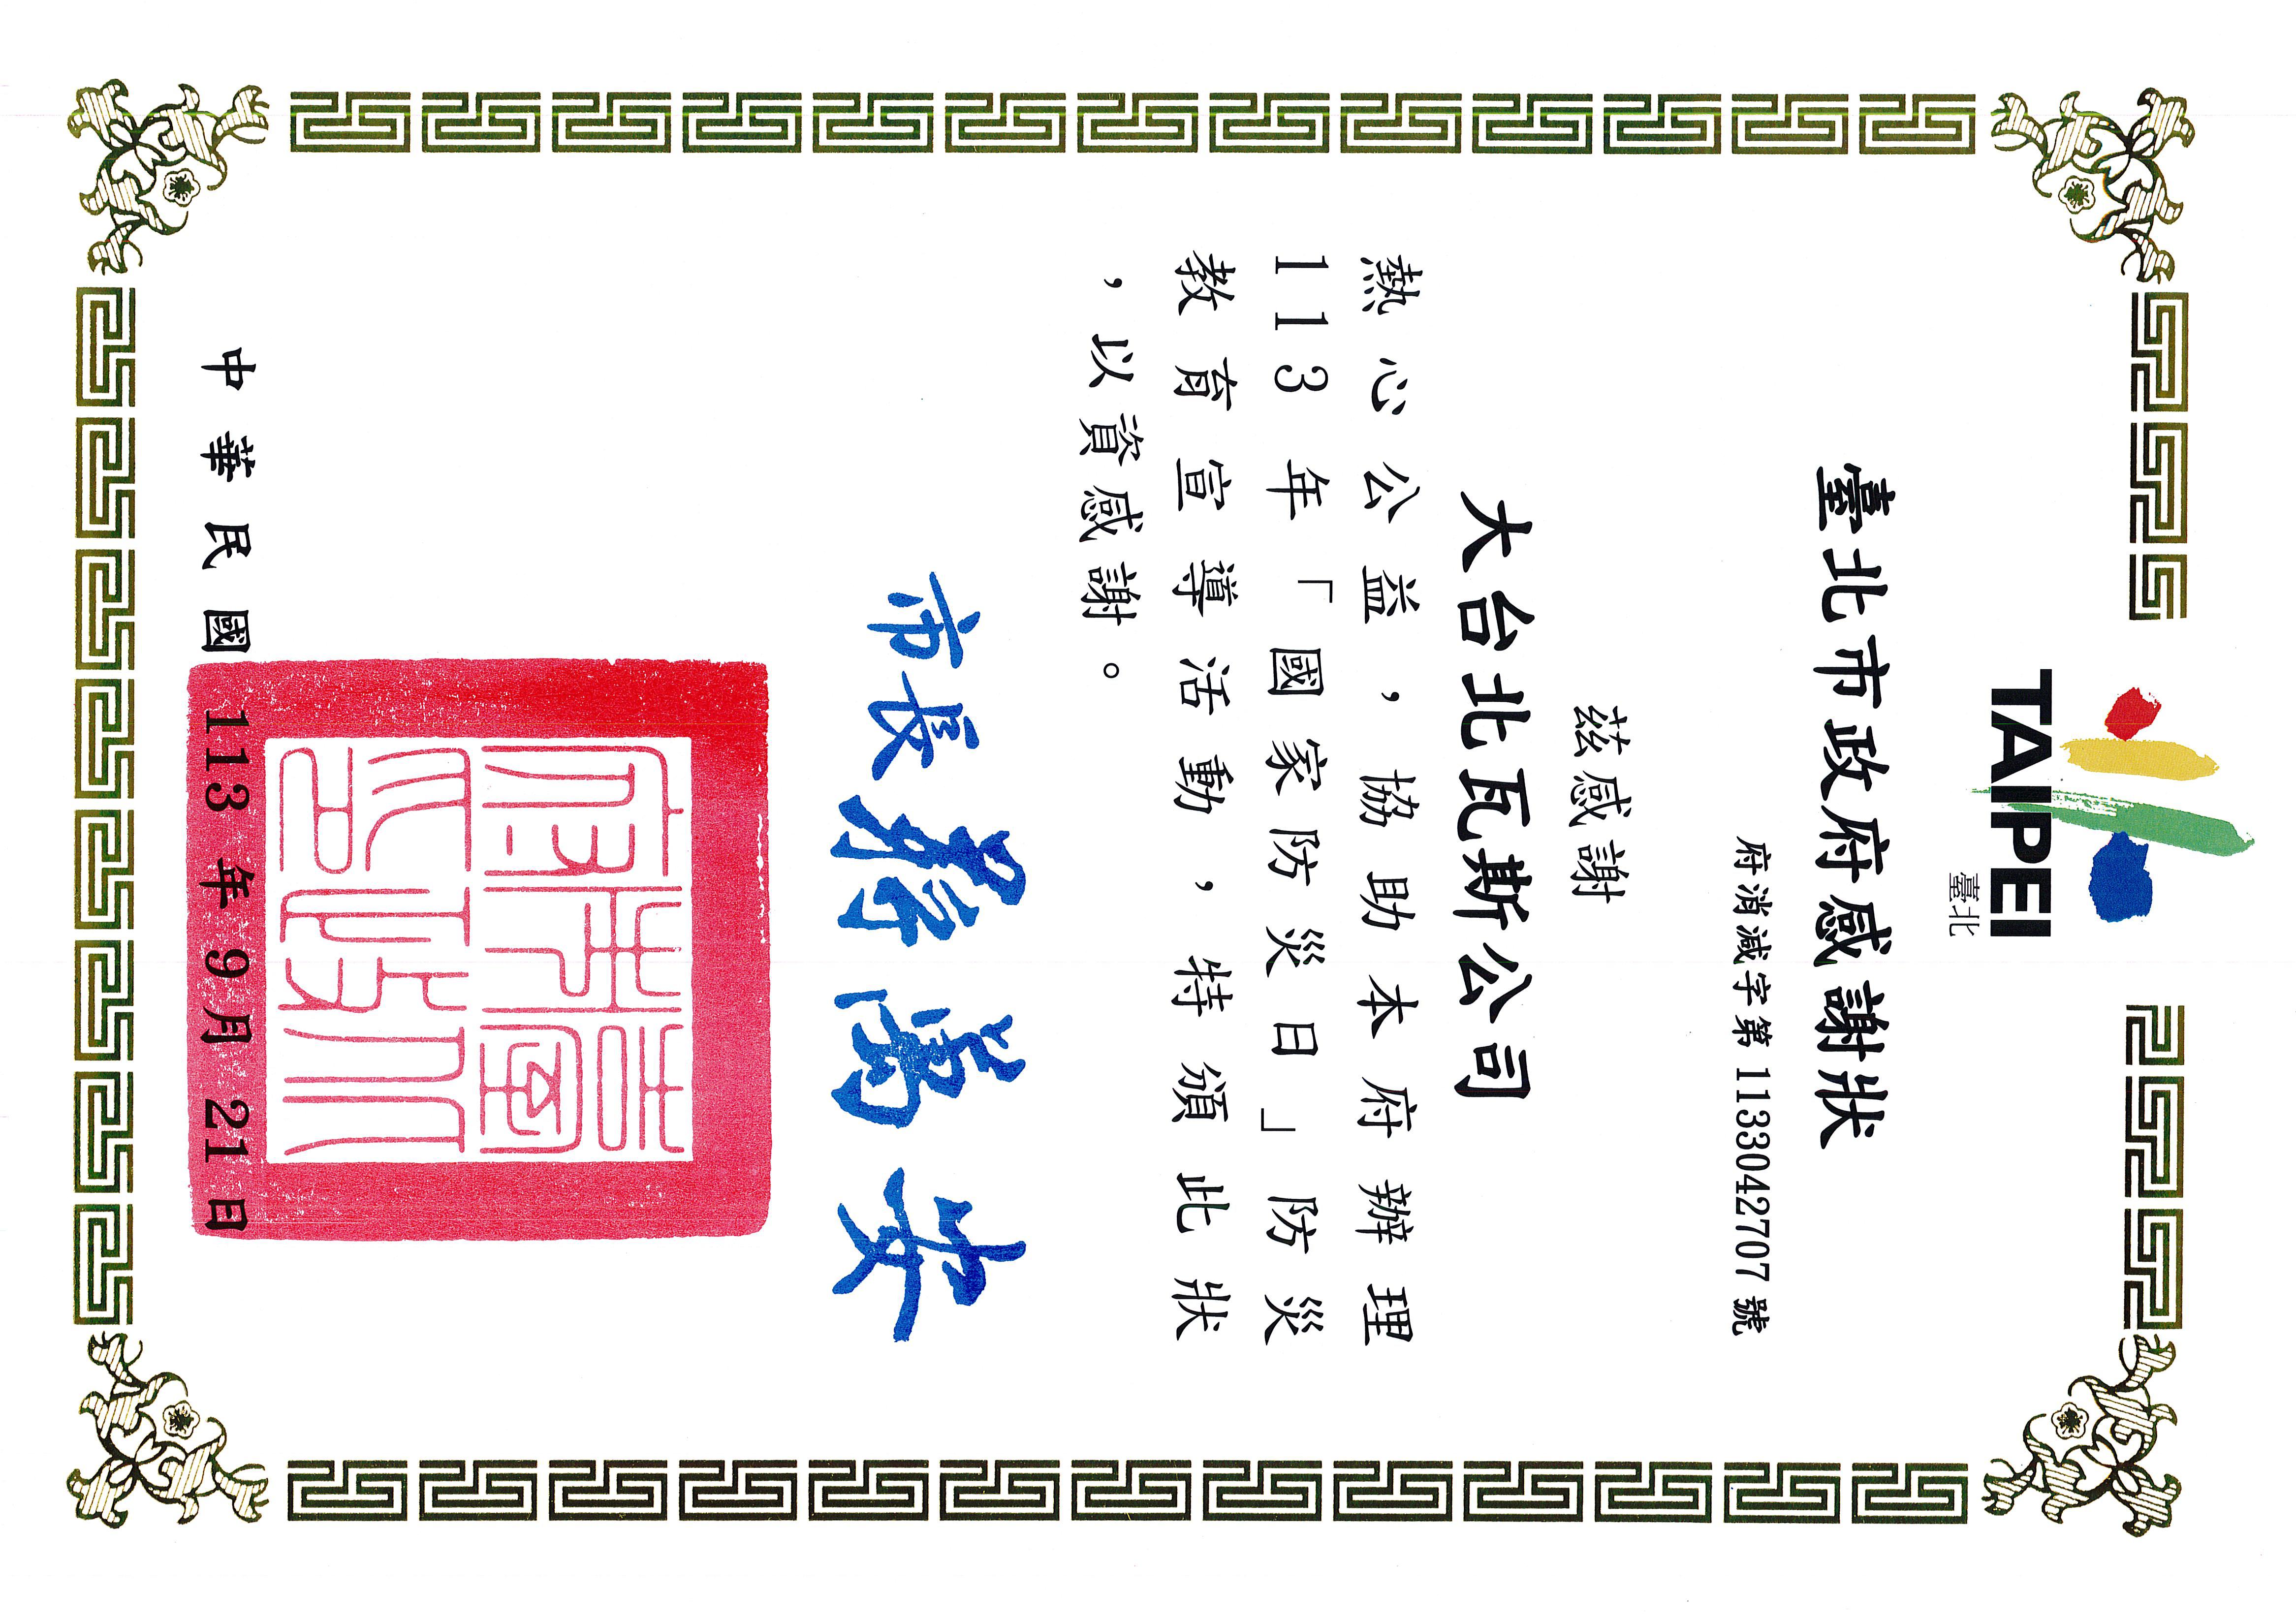 TAIPEI
臺北
臺北市政府感謝狀
府消減字第 1133042707 號
茲感謝
大台北瓦斯公司
熱心公益，協助本府辦理
113 年「國家防災日」防災
教育宣導活動，特頒此狀
，以資感謝。
市長 蔣萬安
臺北市政府印
中華民國 113 年 9月 21日